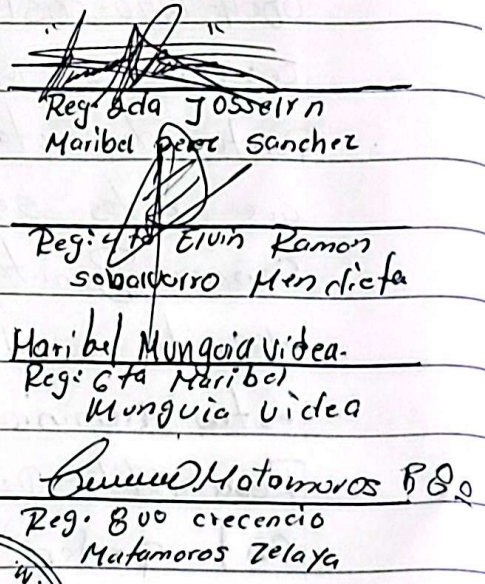 " "
Reg. 2da Josseirn
Maribel perez Sanchez
Reg: 4to Elvin Ramon
sobalvarro Mendieta
Maribel Munguia Videa.
Reg: 6ta Maribel
Munguia videa
Matamoros R 8o
Reg. 8vo crecencio
Matamoros Zelaya
M.